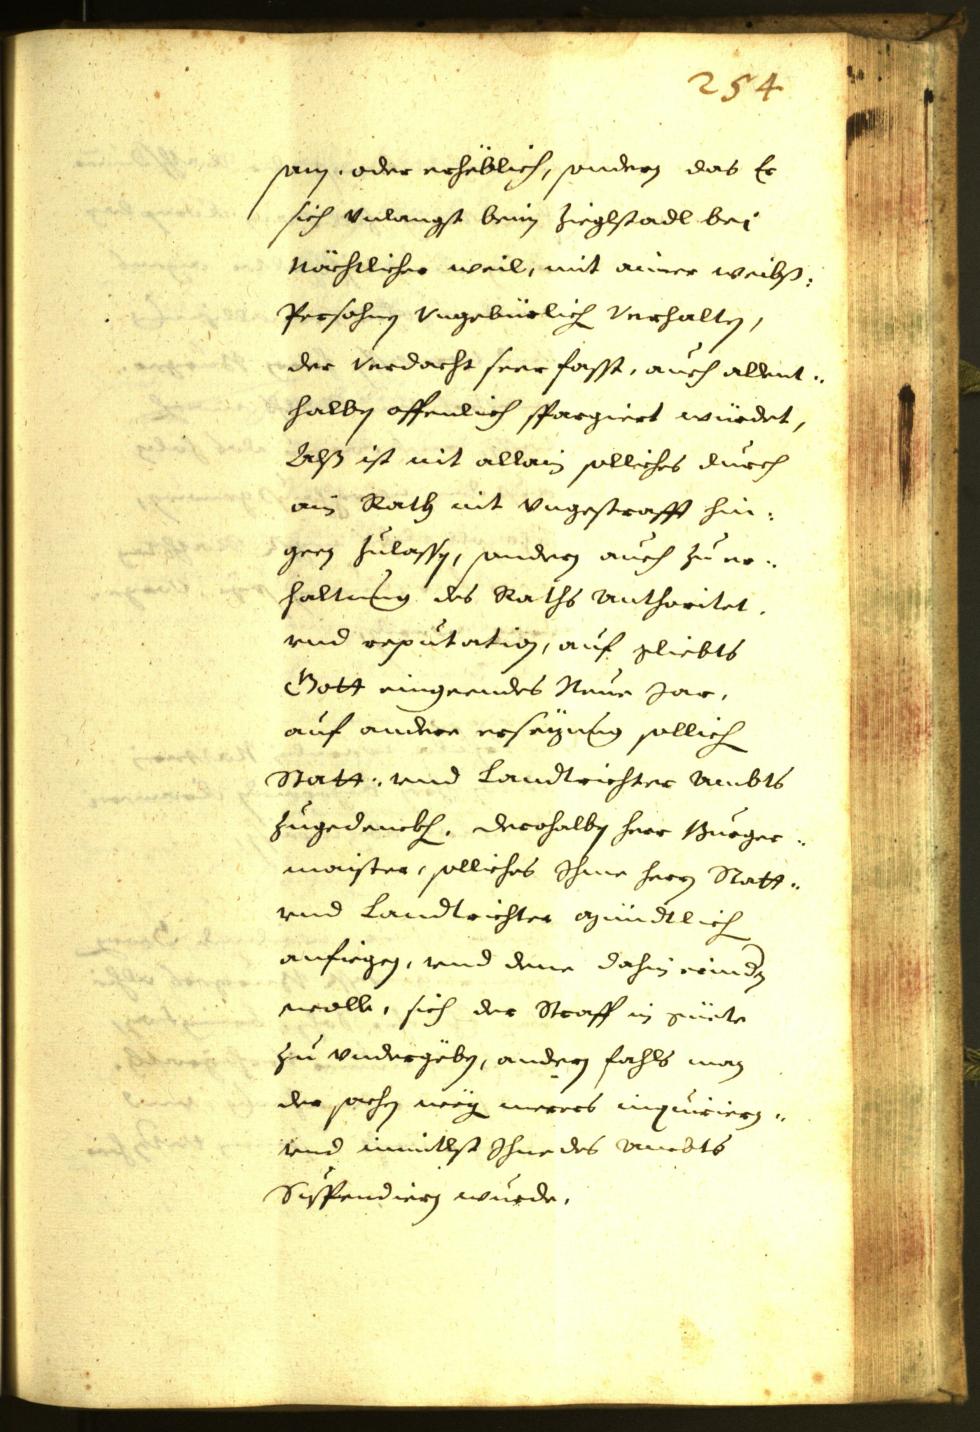 254
sam. oder erhöblich, sondern das Er
sich vnlangst beim Zieglstadl bei
Nächtlicher weil, mit ainer weibß:
Persohn Vngebürlich Verhalten,
der Verdacht seer fasst, auch allent:
halben offenlich spargiert würdet,
Alß ist nit allain solliches durch
ain Rath nit Vngestrafft hin:
geen Zulassen, sondern auch Zu er:
haltung des Raths Authoritet.
vnd reputation, auf geliebts
Gott eingeendes Neue Jar,
auf andere ersözung sollich
Statt: vnd Landtrichter Ambts
Zugedenckhen. derohalben herr Burger:
maister, solliches Ihme herrn Statt:
vnd Landtrichter mündtlich
anfiegen, vnd dene dahin erindern
wolle, sich der Straff in güete
Zu Vndergöben, andern fahls man
der sachen weg merers inquirieren:
vnd inmitlst Ihne des Ambts
Suspendiern wurde.